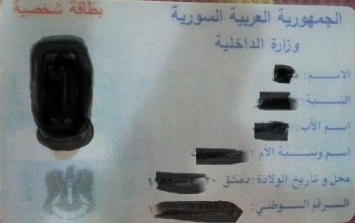 الجمهورية العربية السورية
بطاقة شخصية
وزارة الداخلية
الاسم:
النسبة:
اسم الأب:
اسم ونسبة الأم:
محل و تاريخ الولادة: دمشق
الرقم الوطني: